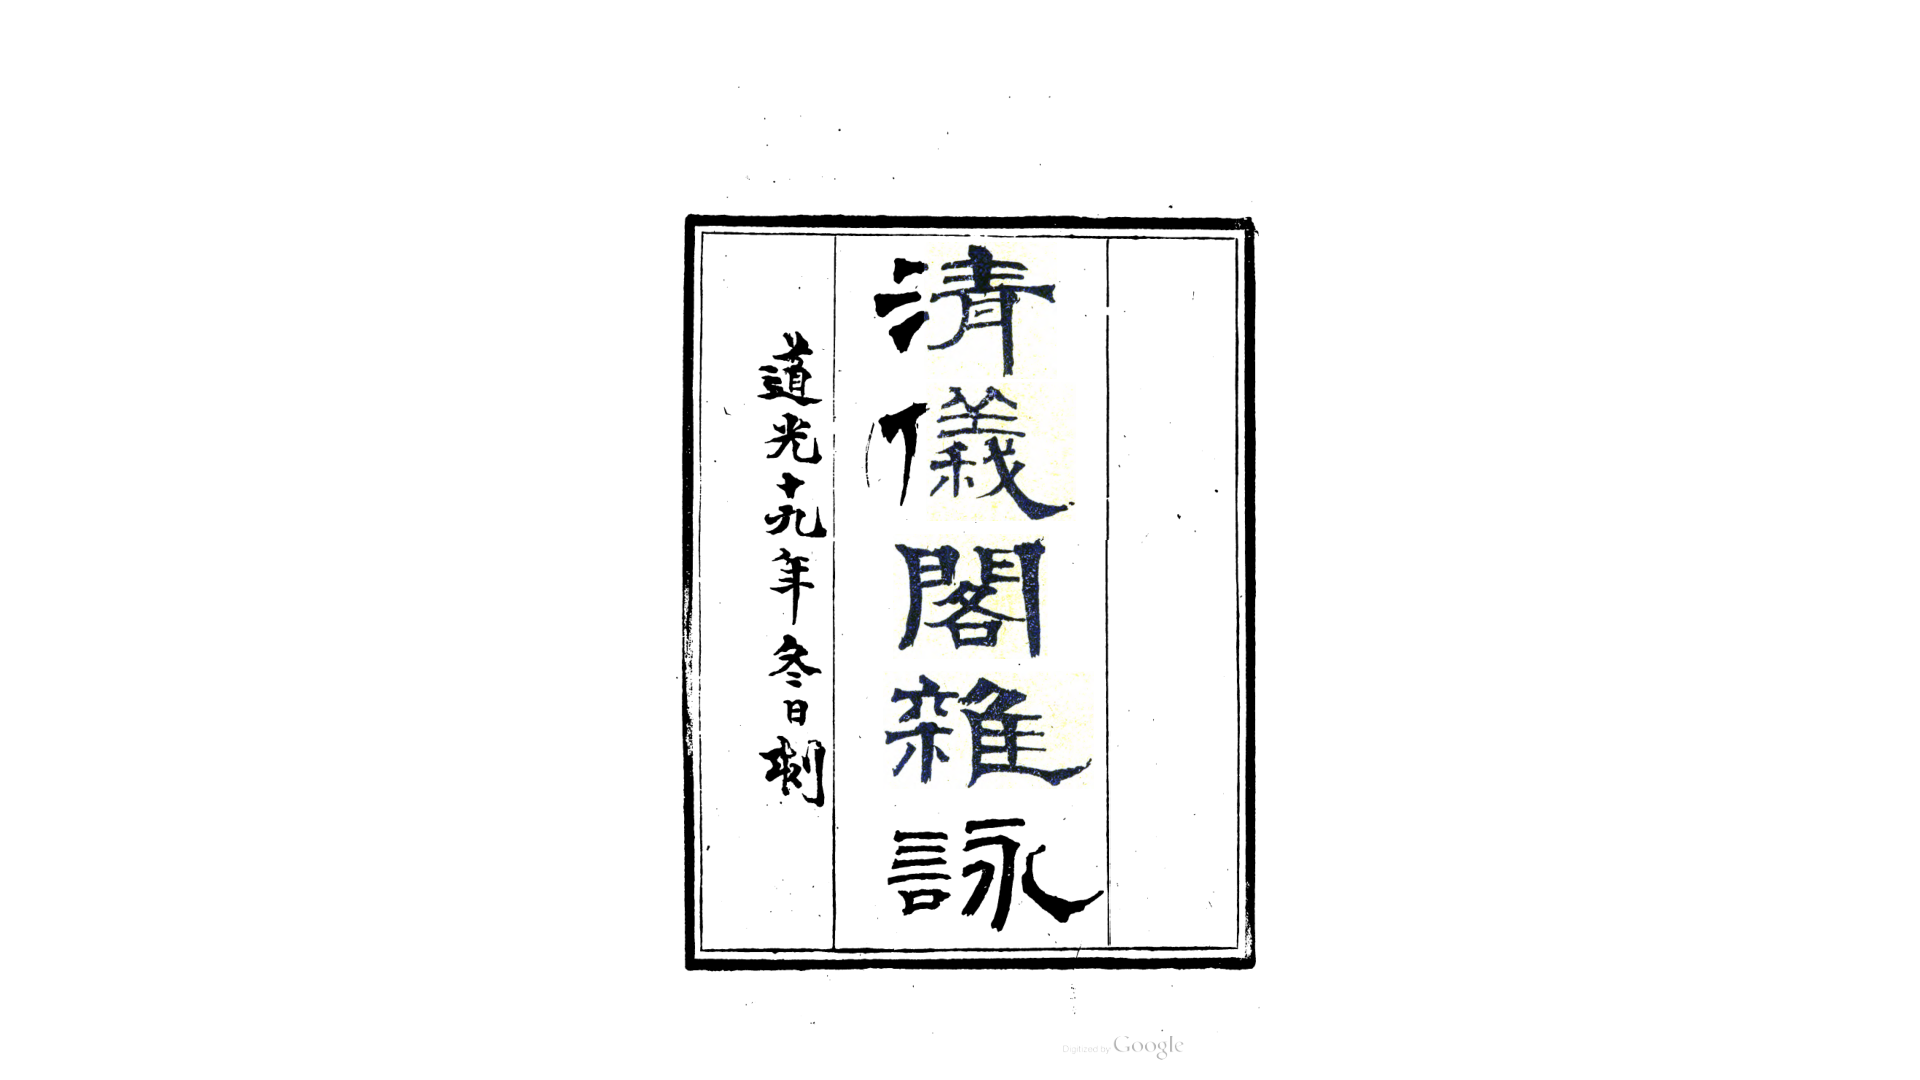 清儀閣雜詠
道光十九年冬日刻
Digitized by Google